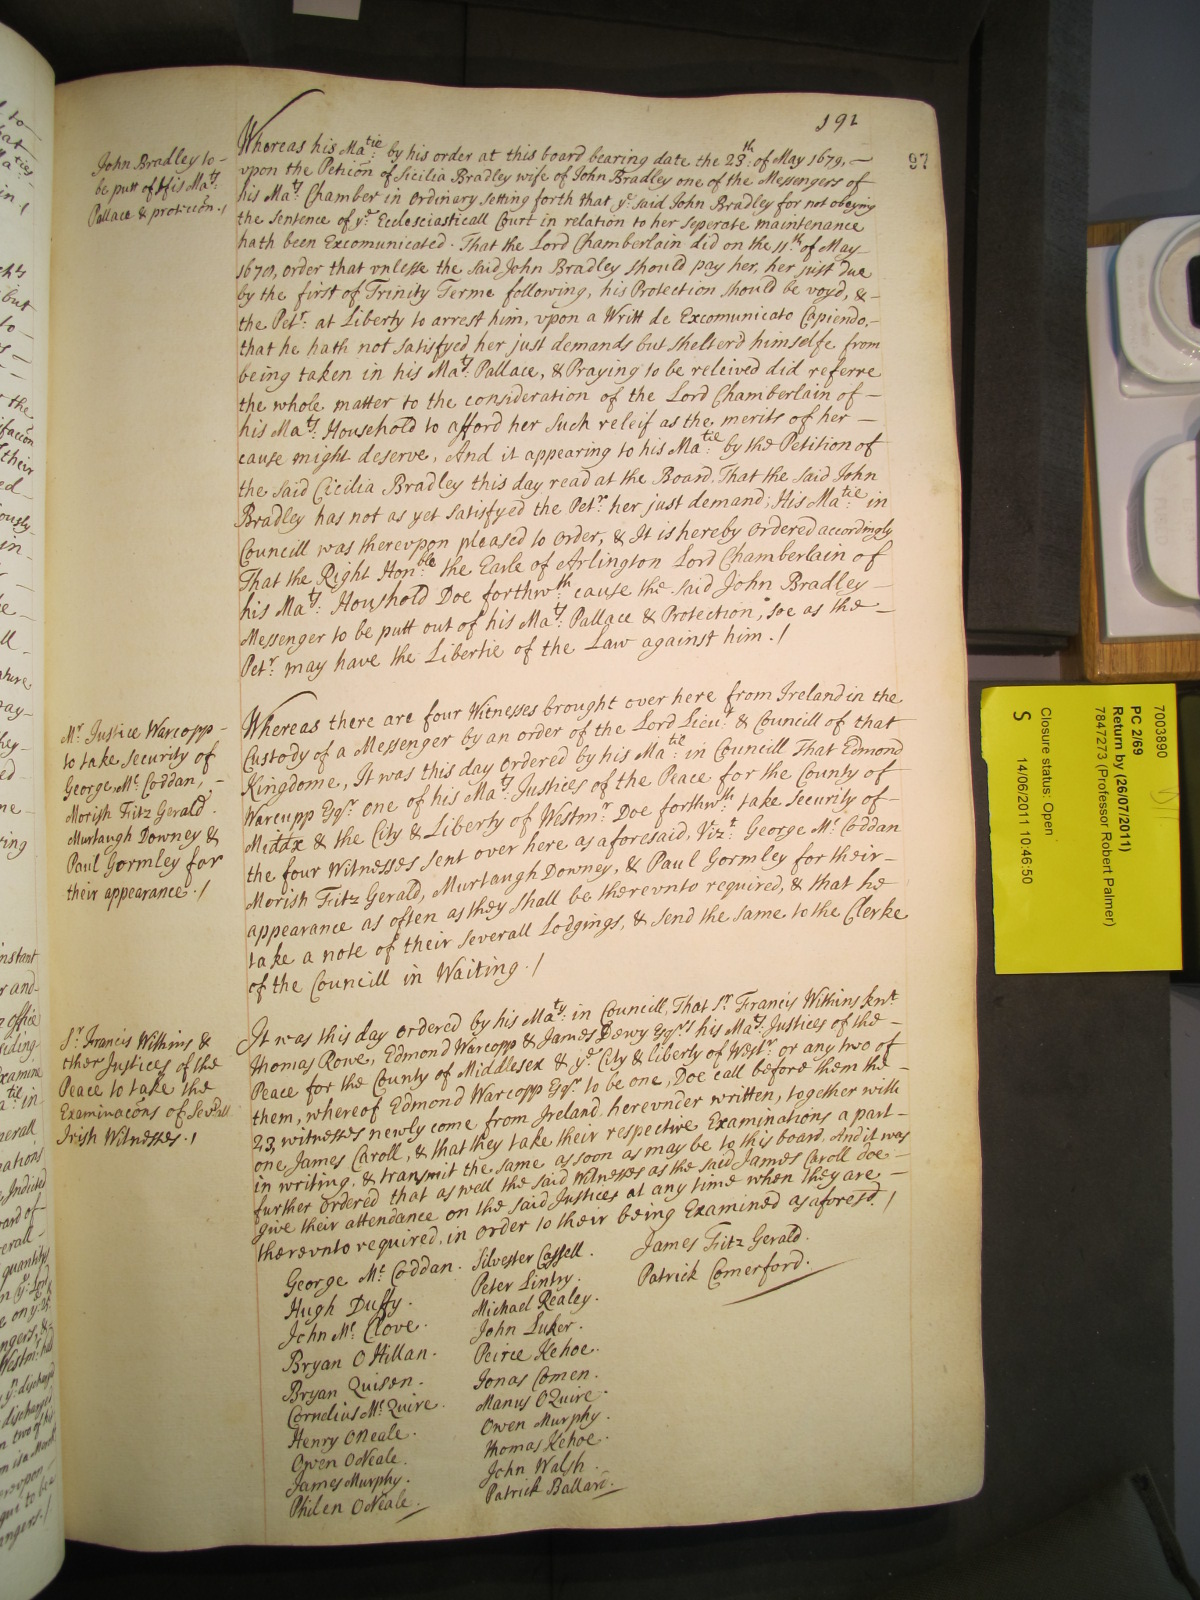 191
97
John Bradley to
be putt of his Mats:
Pallace & protiction. /
Whereas his Matie: by his order at this board bearing date the 23th: of May 1679,
upon the Peticon of Sicilia Bradley wife of John Bradley one of the Messengers of
his Mats: Chamber in ordinary setting forth that ye said John Bradley for not obeying
the sentence of ye Eclesciasticall Court in relation to her seperate maintenance
hath been Excomunicated. That the Lord Chamberlain did on the 11th. of May
1670, order that vnlesse the said John Bradley should pay her, her just due
by the first of Trinity Terme following, his Protection should be voyd, &
the Petr: at Liberty to arrest him, vpon a Writt de Excomunicato Capiendo,
that he hath not satisfyed her just demands but shelterd himselfe from
being taken in his Mats: Pallace, & Praying to be releived did referre
the whole matter to the consideration of the Lord Chamberlain of
his Mats: Household to afford her such releif as the merits of her
cause might deserve, And it appearing to his Matie: by the Petition of
the said Cicilia Bradley this day read at the Board, That the said John
Bradley has not as yet satisfyed the Petrs. her just demand; His Matie: in
Councill was therevpon pleased to order, & It is hereby ordered accordingly
That the Right Honble the Earle of Arlington Lord Chamberlain of
his Mats: Houshold Doe forthwth: cause the said John Bradley
Messenger to be putt out of his Mats: Pallace & Protection, soe as the
Petr: may have the Libertie of the Law against him. /
Mr. Justice Warcopp
to take security of
George Mc: Coddan,
Morish Fitz Gerald.
Murtaugh Downey &
Paul Gormley for
their appearance. /
Whereas there are four Witnesses brought over here from Ireland in the
Custody of a Messenger by an order of the Lord Lieut: & Councill of that
Kingdome, It was this day ordered by his Matie: in Councill That Edmond
Warcupp Esqr: one of his Mats: Justices of the Peace for the County of
Middx & the City & Liberty of Westmr: Doe forthwth: take security of
the four Witnesses sent over here as aforesaid, Vizt: George Mc: Coddan
Morish Fitz Gerald, Murtaugh Downey, & Paul Gormley for their
appearance as often as they shall be therevnto required, & that he
take a note of their severall Lodgings, & send the same to the Clerke
of the Councill in Waiting. /
Sr. Francis Withins &
other Justices of the
Peace to take the
Examinacons of Sevrll
Irish Witnesses. /
It was this day ordered by his Maty: in Councill, That Sr. Francis Withins Knt
Thomas Rowe, Edmond Warcopp & James Dewy Esqrs: his Mats: Justices of the
Peace for the County of Middlesex & ye City & liberty of Westr: or any two of
them, whereof Edmond Warcopp Esqr: to be one, Doe call before them the
23, witnesses newly come from Ireland herevnder written, together with
one James Caroll, & that they take their respective Examinations a part
in writing, & transmit the same as soon as may be to this board. And it was
further ordered that as well the said Witnesses as the said James Caroll doe
give their attendance on the said Justices at any time when they are
therevnto required, in order to their being Examined as aforesd. /
George Mc: Coddan.
Hugh Duffy.
John Mc: Clove.
Bryan O Hillan.
Bryan Quison.
Cornelius Mc: Quire.
Henry ONeale.
Owen ONeale.
James Murphy.
Philen ONeale.
Silvester Cassell.
Peter Lintry.
Michael Realey.
John Luker.
Peirce Kehoe.
Jonas Comen.
Manus OQuire.
Owen Murphy.
Thomas Kehoe.
John Walsh.
Patrick Ballard.
James Fitz Gerald.
Patrick Comerford.
7003890
PC 2/69
Return by (26/07/2011)
7847273 (Professor Robert Palmer)
Closure status: Open
S 14/06/2011 10:46:50